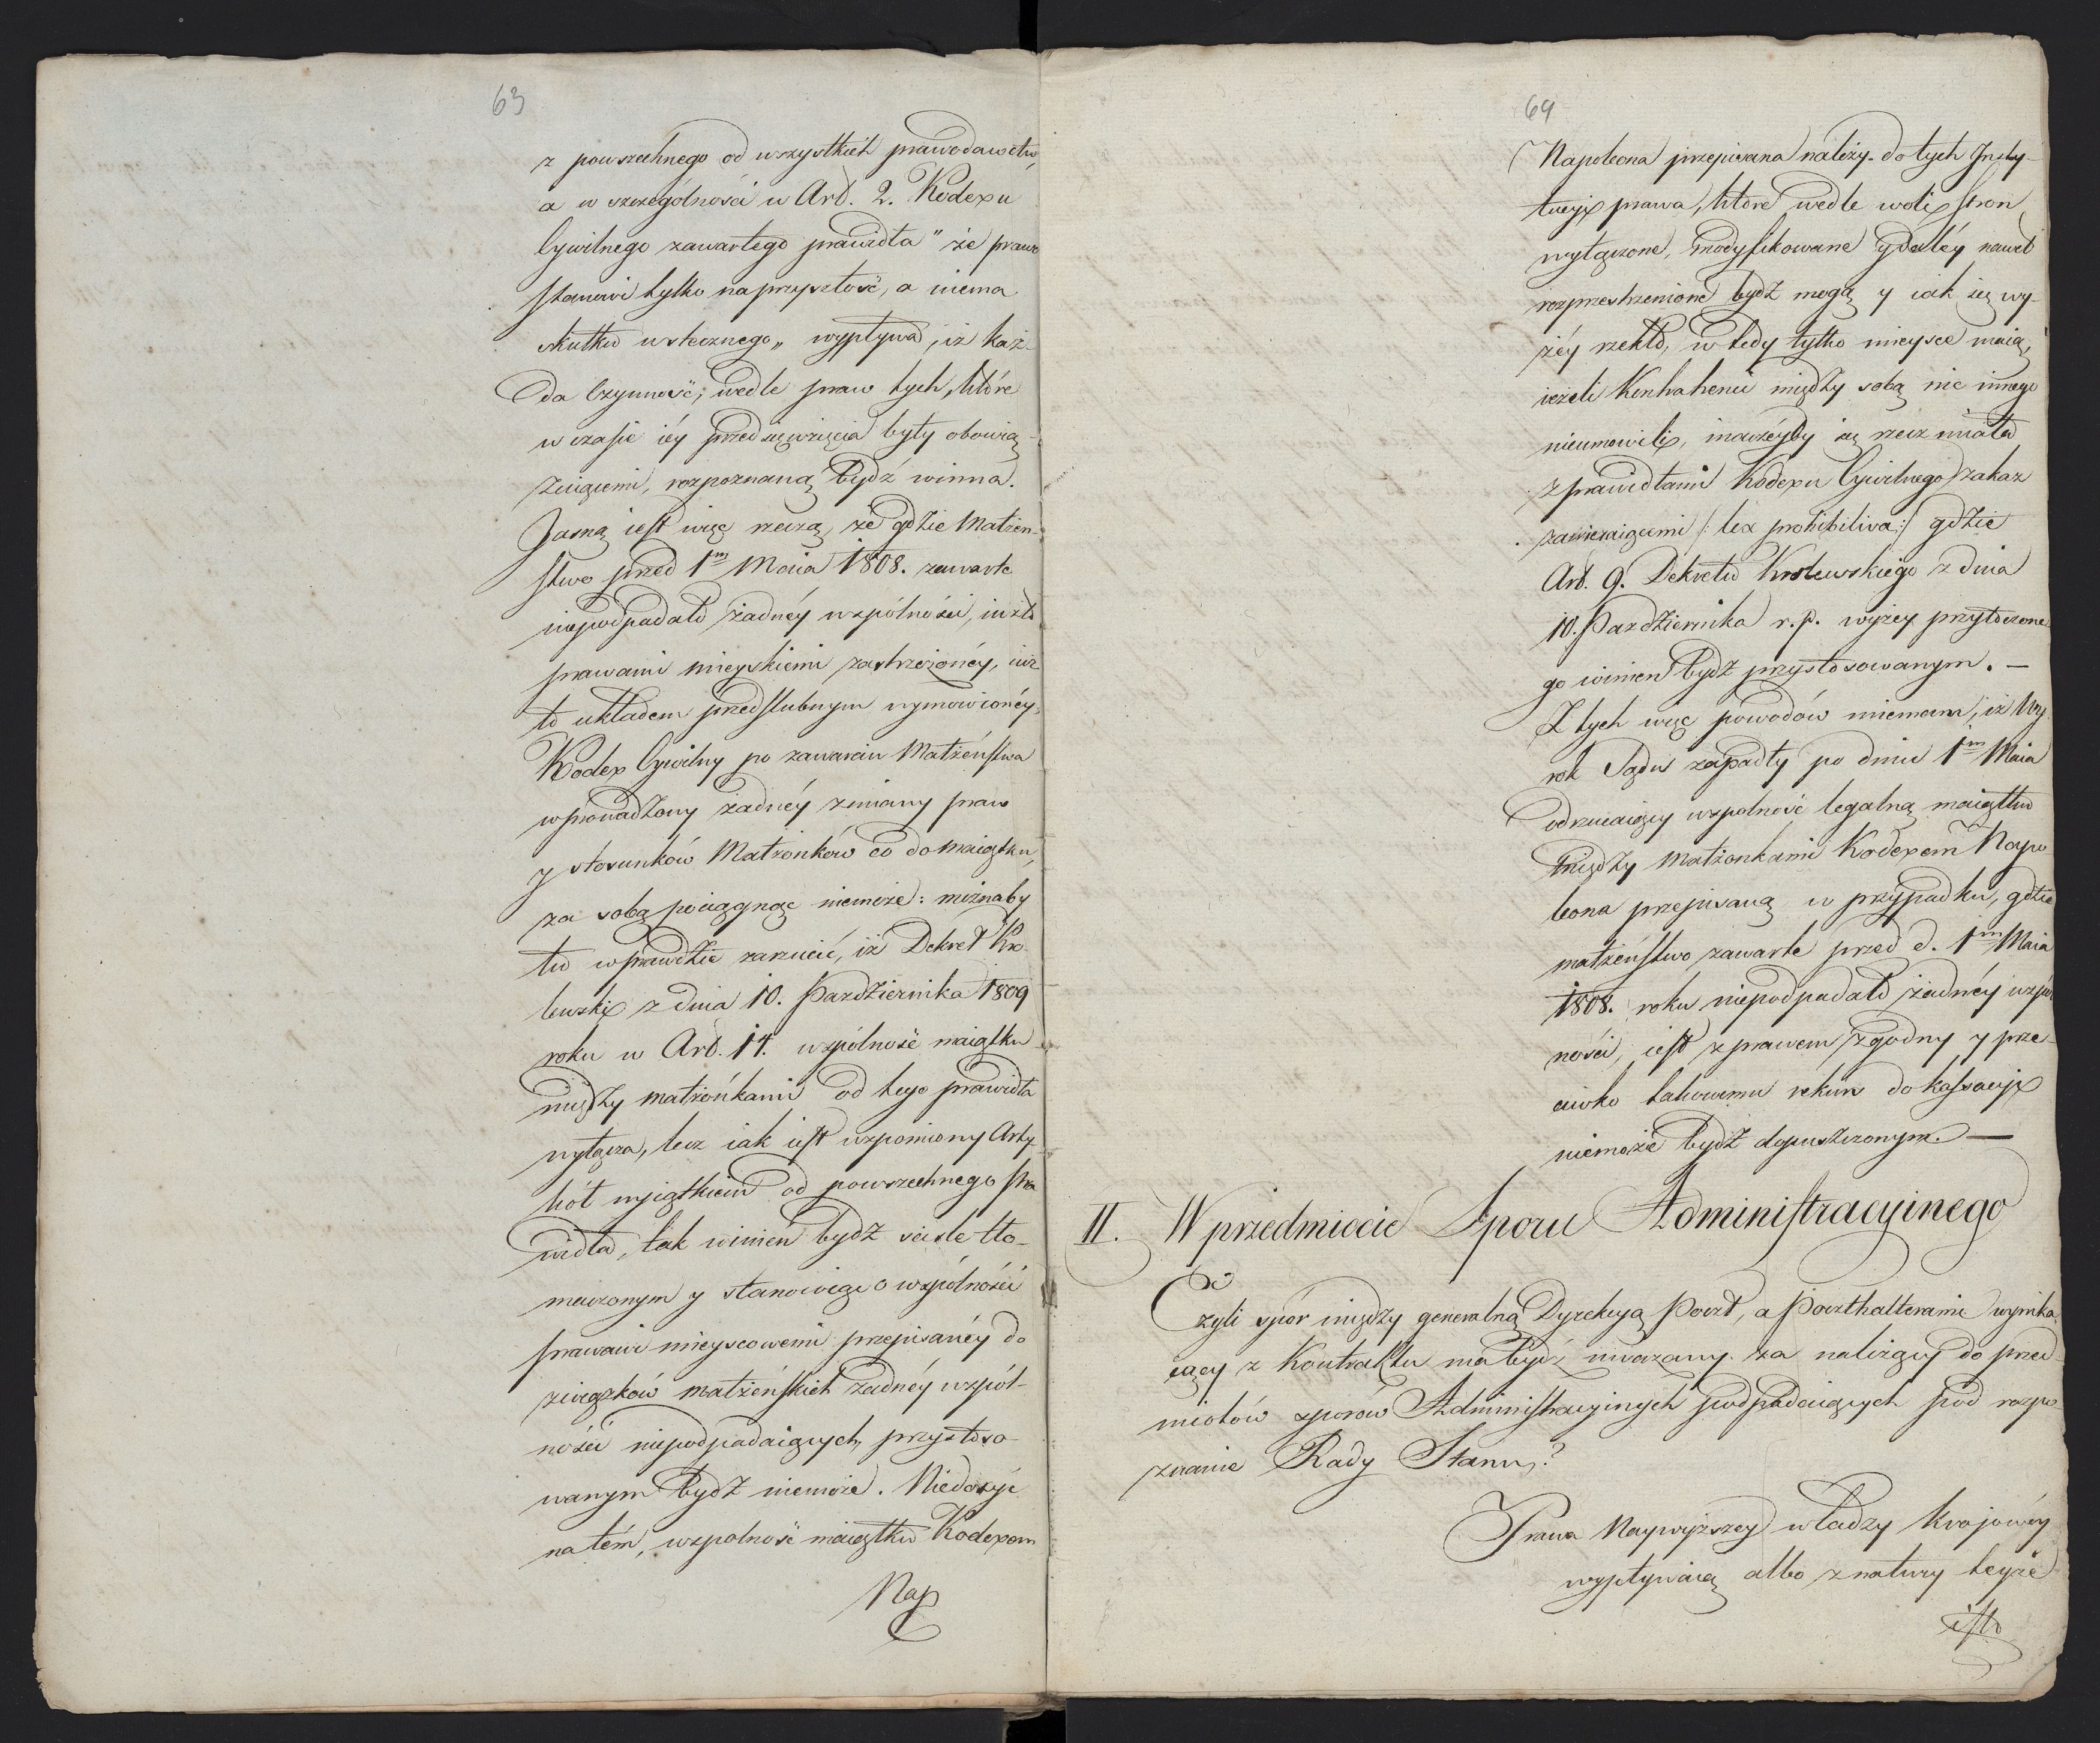 63
z powszechnego od wszystkich prawodawctw,
a w szczególności w Art. 2. Kodexu
Cywilnego zawartego prawidła "że prawo
stanowi tylko na przyszłość, a niema
skutku wstecznego„ wypływa, iż każ-
da czynność, wedle praw tych, które
w czasie iéy przedsięwzięcia były obowią-
zuiącemi, rozpoznaną bydź winna.
Jasną iest więc rzeczą, że gdzie Małżeń-
stwo przed 1m Maia 1808. zawarte
niepodpadało żadnéy wspólności, iuż to
prawami mieyskiemi zastrzeżonéy, iuż
to układem przedślubnym wymówionéy,
Kodex Cywilny po zawarciu Małżeństwa
wprowadzony żadnéy zmiany praw
y stosunków Małżonków co do maiątku,
za sobą pociągnąć niemoże: możnaby
tu wprawdzie zarzucić, iż Dekret Kro-
lewski z dnia 10. Października 1809
roku w Art. 14. wspólność maiątku
między małżonkami od tego prawidła
wyłącza, lecz iak iest wspomiony Arty-
kół wyiątkiem od powszechnego pra
widła, tak winien bydź ściśle tło-
maczonym y stanowiąc o wspólności
prawami mieyscowemi przepisanéy do
związków małżeńskich żadnéy wspól-
ności niepodpadaiących, przystoso-
wanym bydź niemoże. Niedosyć
na tém, wspolność maiątku Kodexem
Nap
64
Napoleona przepisana należy do tych Insty-
tucyi prawa, które wedle woli stron
wyłączone, modyfikowane y daléy nawet
rozprzestrzenione bydź mogą y iak się wy-
żéy rzekło, w tedy tylko mieysce maią,
ieżeli Kontrahenci między sobą nic innego
nieumowili, inaczéyby się rzecz miała
z prawidłami Kodexu Cywilnego zakaz
zawieraiącemi /: lex prohibitiva :/ gdzie
Art. 9. Dekretu Krolewskiego z dnia
10. Października r. p. wyżey przytoczone
go winien bydź przystosowanym. —
Z tych więc powodów mniemam, iż Wy
rok Sądu zapadły po dniu 1m Maia
odrzucaiący wspolność legalną maiątku
między Małżonkami Kodexem Napo
leona przepisaną w przypadku, gdzie
małżeństwo zawarte przed d. 1m Maia
1808. roku niepodpadało żadnéy wspól
ności, iest z prawem zgodny y prze-
ciwko takowemu rekurs do kassacyi
niemoże bydź dopuszczonym. —
II. W przedmiocie Sporu Administracyinego
Czyli spór między generalną Dyrekcyą Poczt, a Poczthalterami wynika
iący z Kontraktu ma bydź uważany za należący do przed-
miotów sporów Administracyinych podpadaiących pod rozpo-
znanie Rady Stanu?
Prawa Naywyższey władzy krajowéy
wypływaią albo z natury teyże
isto